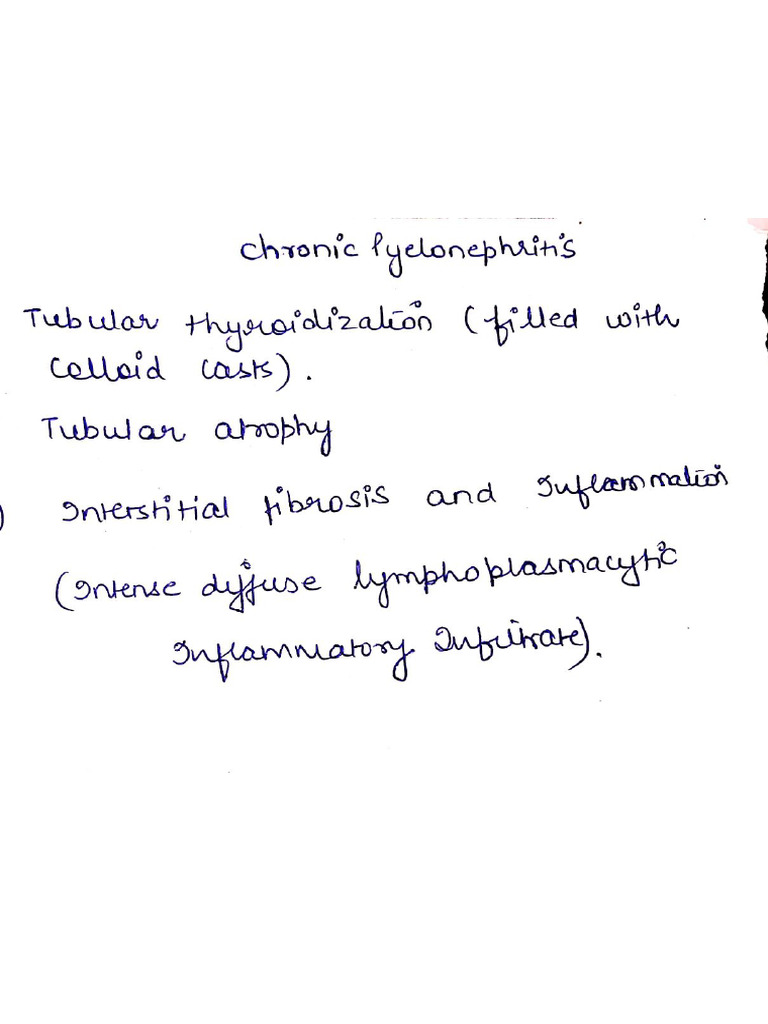 Chronic Pyelonephritis
Tubular thyroidization (filled with
Colloid casts).
Tubular atrophy
) Interstitial fibrosis and Inflammation
(Intense diffuse lymphoplasmacytic
Inflammatory Infiltrate).